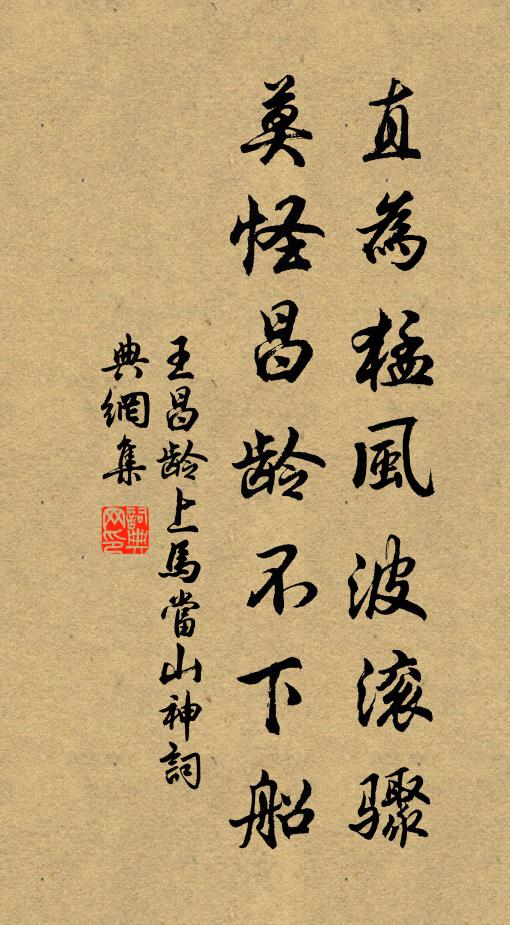 直為猛風波滚驟
莫怪昌龄不下船
王昌龄上馬當山神詞
典網集
詞典網印